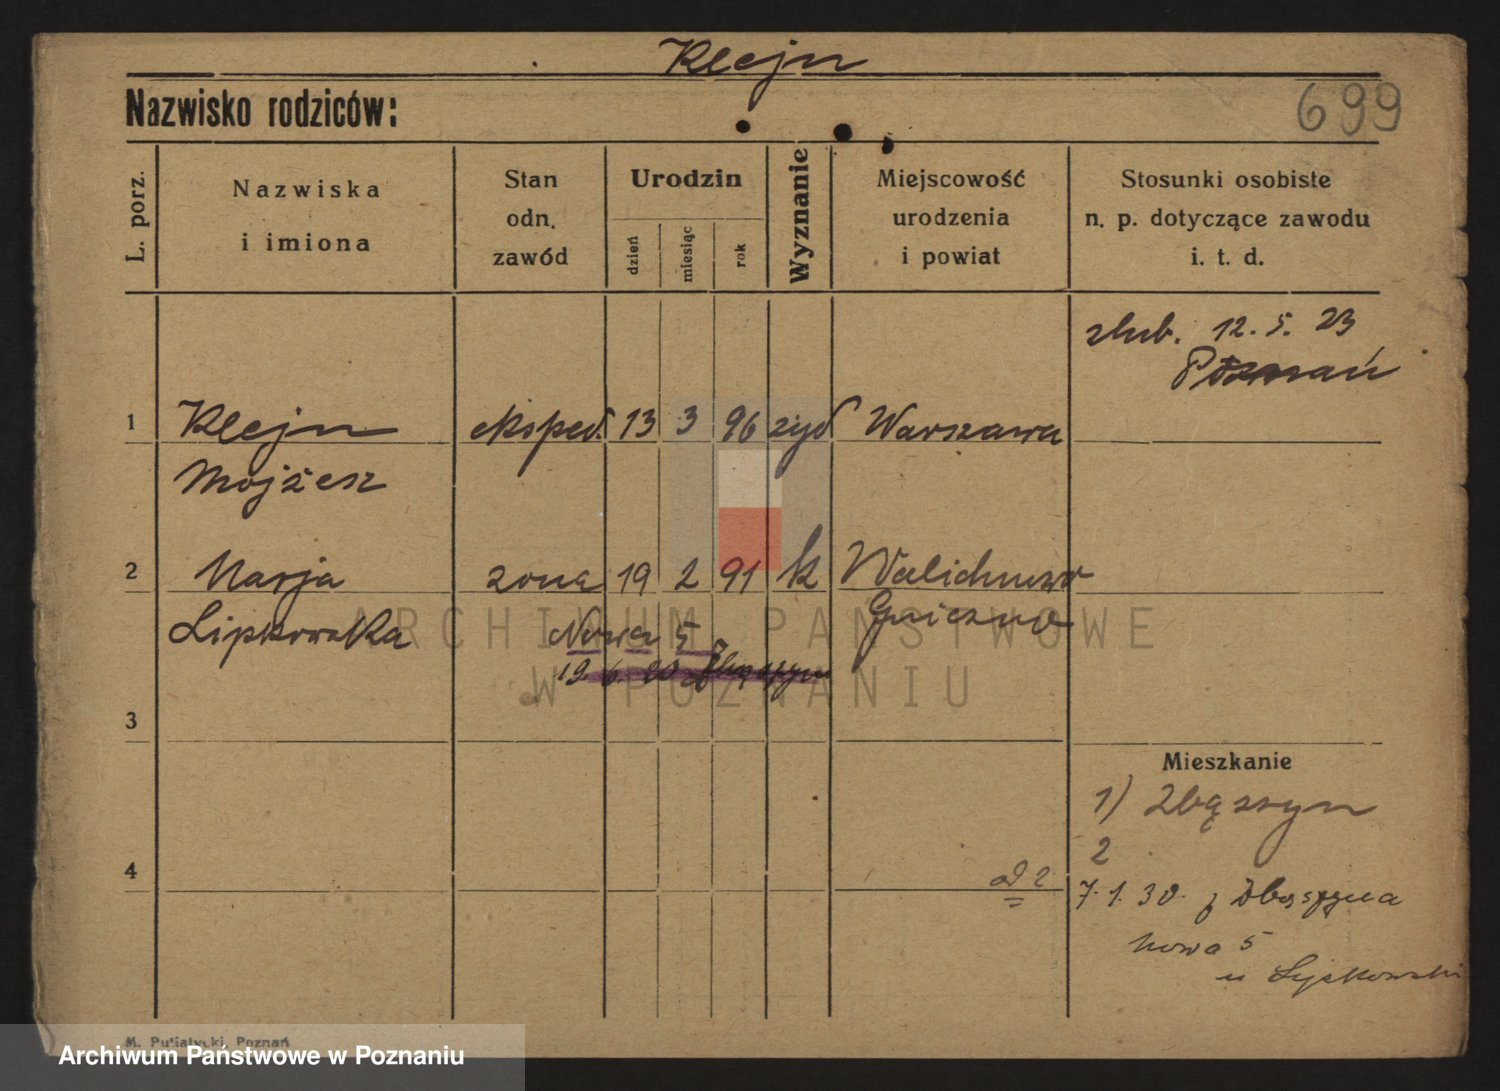 Klejn
Nazwisko rodziców:
699
L. porz.
Nazwiska
i imiona
Stan
odn.
zawód
Urodzin
dzień
miesiąc
rok
Wyznanie
Miejscowość
urodzenia
i powiat
Stosunki osobiste
n. p. dotyczące zawodu
i. t. d.
zlub. 12. 5. 23
Poznań
1 Klejn eksped. 13 3 96 zyd Warszawa
Mojżesz
2 Marja zona 19 2 91 k Walichnowo
Lipkowska Nowa 5 Gniezno
19. 6. 23 Zbąszyn
3
Mieszkanie
1) Zbąszyn
2
4 od 2
7. 1. 30. z Zbąszynia
Nowa 5
u Lipkowski
M. Putiatycki, Poznań
ARCHIWUM PAŃSTWOWE
W POZNANIU
Archiwum Państwowe w Poznaniu